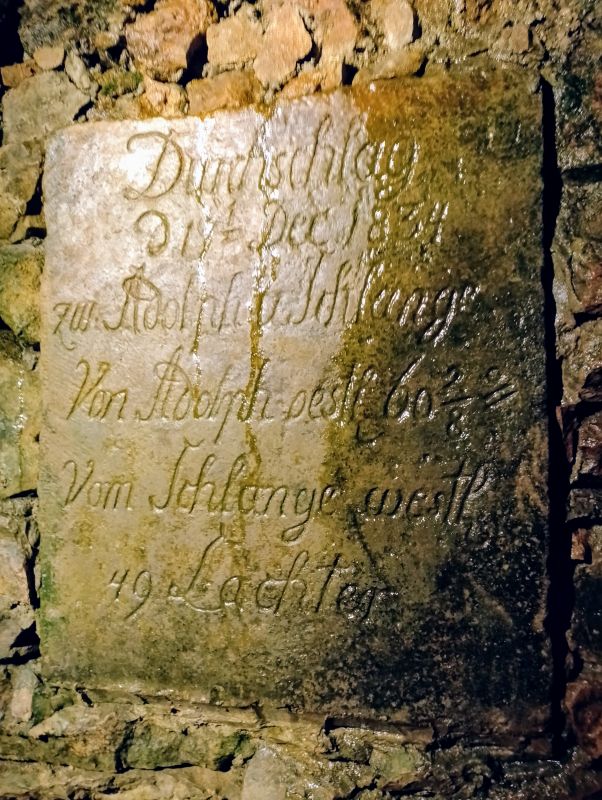 Durchschlag
1834
Adolph u. Schlange
Von Adolph oestl 60 2/8
Vom Schlange westl
49 Lachter